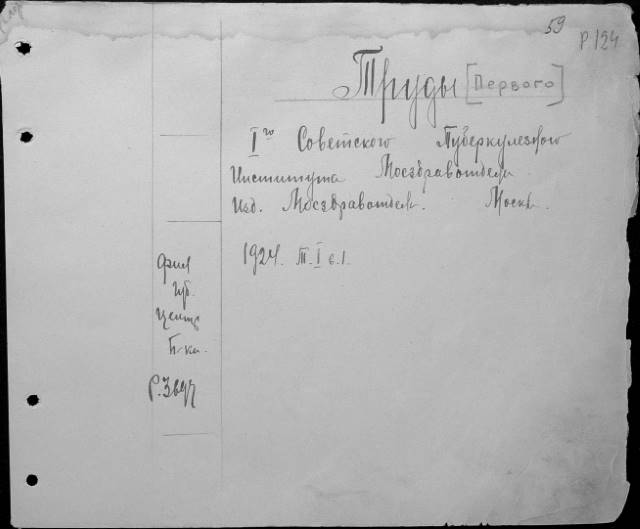 59
Р 124
Труды [Первого]
Iго Советского Туберкулезного
Института Мосздравотдела
Изд. Мосздравотдела. Москва.
1924. Т. I в.1.
Фил
Губ.
Центр
Б-ки.